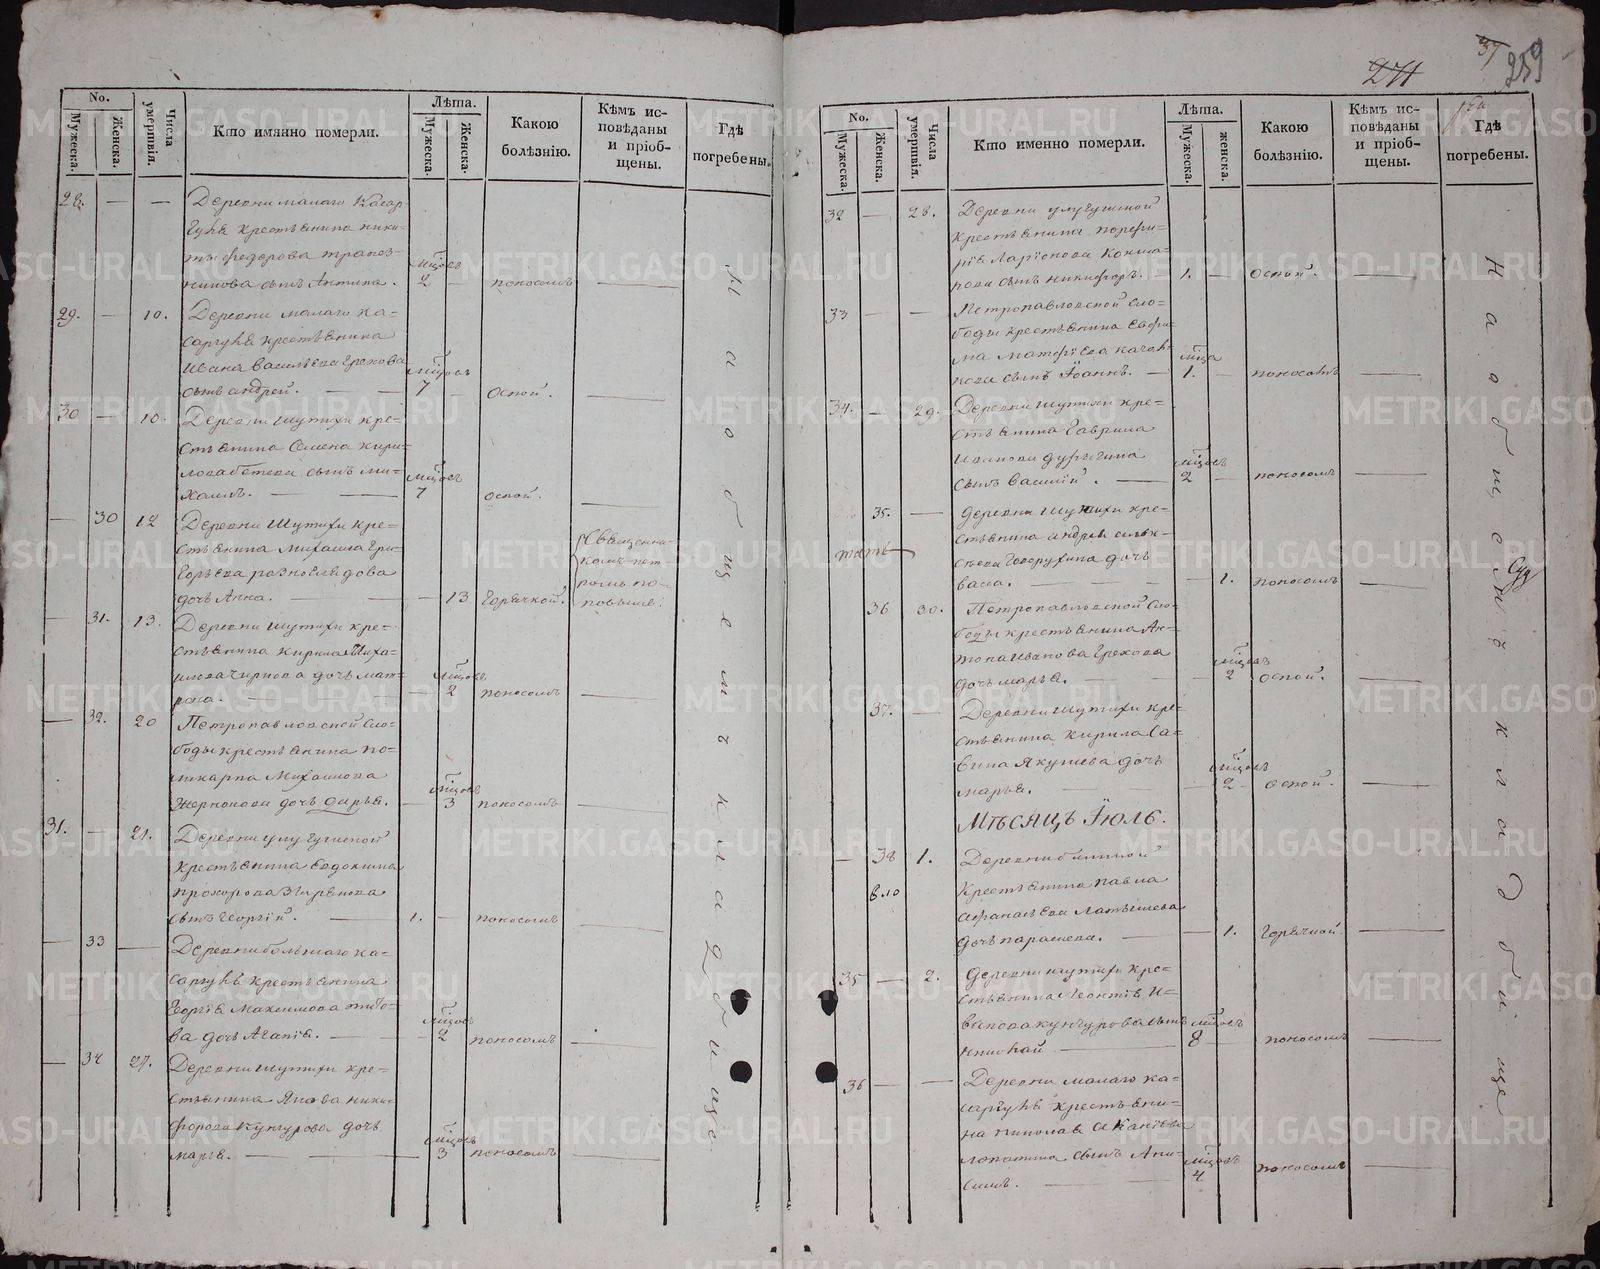 37
271
259
No.
Мужеска.
Женска.
Числа умертвія.
Кто имянно померли.
Лѣта.
Мужеска.
Женска.
Какою болѣзнію.
Кѣмъ ис-
повѣданы
и пріоб-
щены.
Гдѣ
погребены.
28. — —
Деревни малаго Касар-
гуля крестьянина ники-
ты федорова трапез-
никова сынъ Антипа.
мцовъ
2 — поносомъ —
29. — 10.
Деревни малаго ка-
саргуля крестьянина
Ивана Васильева Грехова
сынъ андрей.
мцовъ
7 — Оспой. —
30 — 10.
Деревни шутихи кре-
стьянина Семена кири-
лова сынъ ми-
хаилъ.
мцовъ
7 оспой. —
— 30 12
Деревни шутихи кре-
стьянина Михаила Гри-
горьева
дочь Анна.
— 13 Горячкой.
Священни-
комъ пет
ромъ по-
повымъ.
31. 13.
Деревни шутихи кре-
стьянина кирила Миха-
илова дочь мат-
рона.
мцовъ
2 поносомъ —
— 32. 20
Петропавловской сло-
боды крестьянина по-
ликарпа Михаилова
дочь дарья.
мцовъ
— 3 поносомъ —
31. — 21.
Деревни улугушской
крестьянина Евдокима
прохорова Зырянова
сынъ Георгій.
1. — поносомъ —
— 33 —
Деревни большаго ка-
саргуля крестьянина
Георгія Максимова
дочь Агапія.
мцовъ
2 поносомъ —
— 34 27.
Деревни шутихи кре-
стьянина Якова ники-
форова Кунгурова дочь
марья.
мцовъ
3 поносомъ —
На общемъ кладбище
No.
Мужеска.
Женска.
Числа умертвія.
Кто именно померли.
Лѣта.
Мужеска.
женска.
Какою болѣзнію.
Кѣмъ ис-
повѣданы
и пріоб-
щены.
Гдѣ
погребены.
32 — 28.
Деревни улугушской
крестьянина порфи-
рія Ларіонова
сынъ никифоръ.
1. — Оспой. —
33 — —
Петропавловской сло-
боды крестьянина Ефи-
ма Матфіева
сынъ Іоаннъ.
мца
1. — поносомъ —
34. — 29.
Деревни шутихи кре-
стьянина Гаврила
Иванова
сынъ василій.
мцовъ
2 — поносомъ —
35. —
Деревни шутихи кре-
стьянина андрея
Говорухина дочь
васса.
— 1. поносомъ —
36 30.
Петропавловской сло-
боды крестьянина Ан-
тона Иванова Грехова
дочь марья.
мцовъ
2 оспой. —
37. —
Деревни шутихи кре-
стьянина кирила Са-
вина Якушева дочь
марья.
мцовъ
2 оспой. —
Мѣсяцъ Іюль.
— 38 1.
Деревни
крестьянина павла
афанасьева Латышева
дочь парасковья.
— 1. Горячкой. —
35 — 2.
Деревни шутихи кре-
стьянина Леонтія И-
ванова кунгурова сынъ
николай
мцовъ
8 поносомъ —
36 — —
Деревни малаго ка-
саргуля крестьяни-
на николая
сынъ Ани-
симъ.
мцовъ
4 поносомъ —
На общемъ кладбище
METRIKI.GASO-URAL.RU